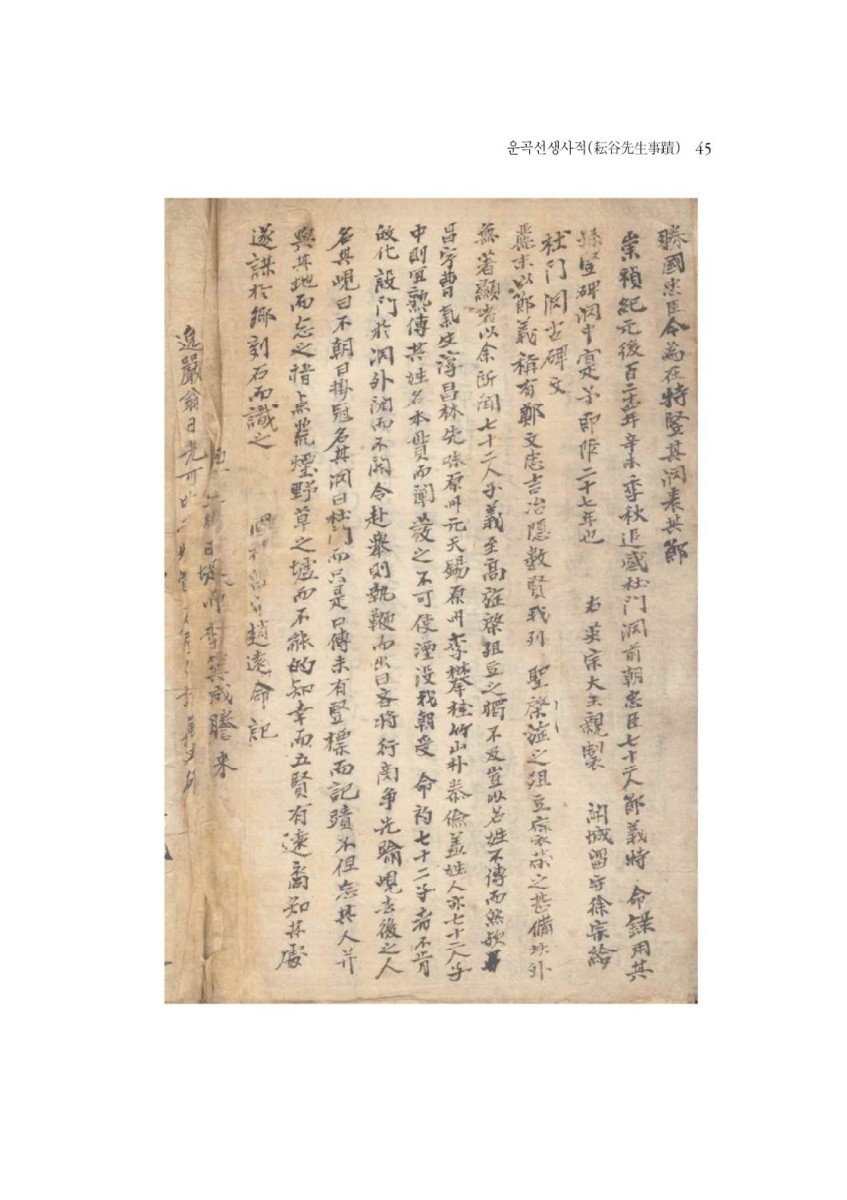 운곡선생사적(耘谷先生事蹟) 45
勝國忠臣今焉在特竪其洞表其節
崇禎紀元後百二十四年辛未季秋追感杜門洞前朝忠臣七十二人節義特 命錄用其
孫竪碑洞中寔 即阼二十七年也 右英宗大王親製 開城留守徐宗給
杜門洞古碑文
麗末以節義稱有鄭文忠吉冶隱數賢我列 聖 之俎豆 之甚備此外
無著顯者以余所聞七十二人子義至高旌褒俎豆之獨不及豈以名姓不傳而然歟
昌寧曺 生淳昌林先味原州元天錫原州李攀桂竹山朴泰儉孟姓人亦七十二人子
中則宜熟傳其姓名本貫而闡發之不可使湮沒我朝受 命初七十二子者不肯
故化設門於洞外閉而不開令赴擧則執鞭而出曰吾將行商爭先踰峴去後之人
名其峴曰不朝曰掛冠名其洞曰杜門而只是口傳未有竪標而記蹟不但忘其人并
與其地而忘之惜 荒煙野草之墟而不能的知幸而五賢有遠裔知其處
遂謀於鄕刻石而識之
趙遠命記
李箕成謄來
進嚴翁曰